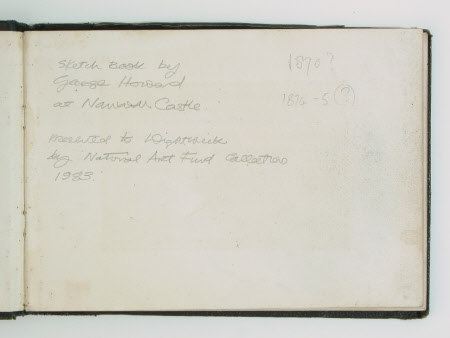 Sketch Book by
George Howard
at Naworth Castle.
1870?
1874-5 (?)
presented to Wightwick
by National Art Fund Collection
1983.